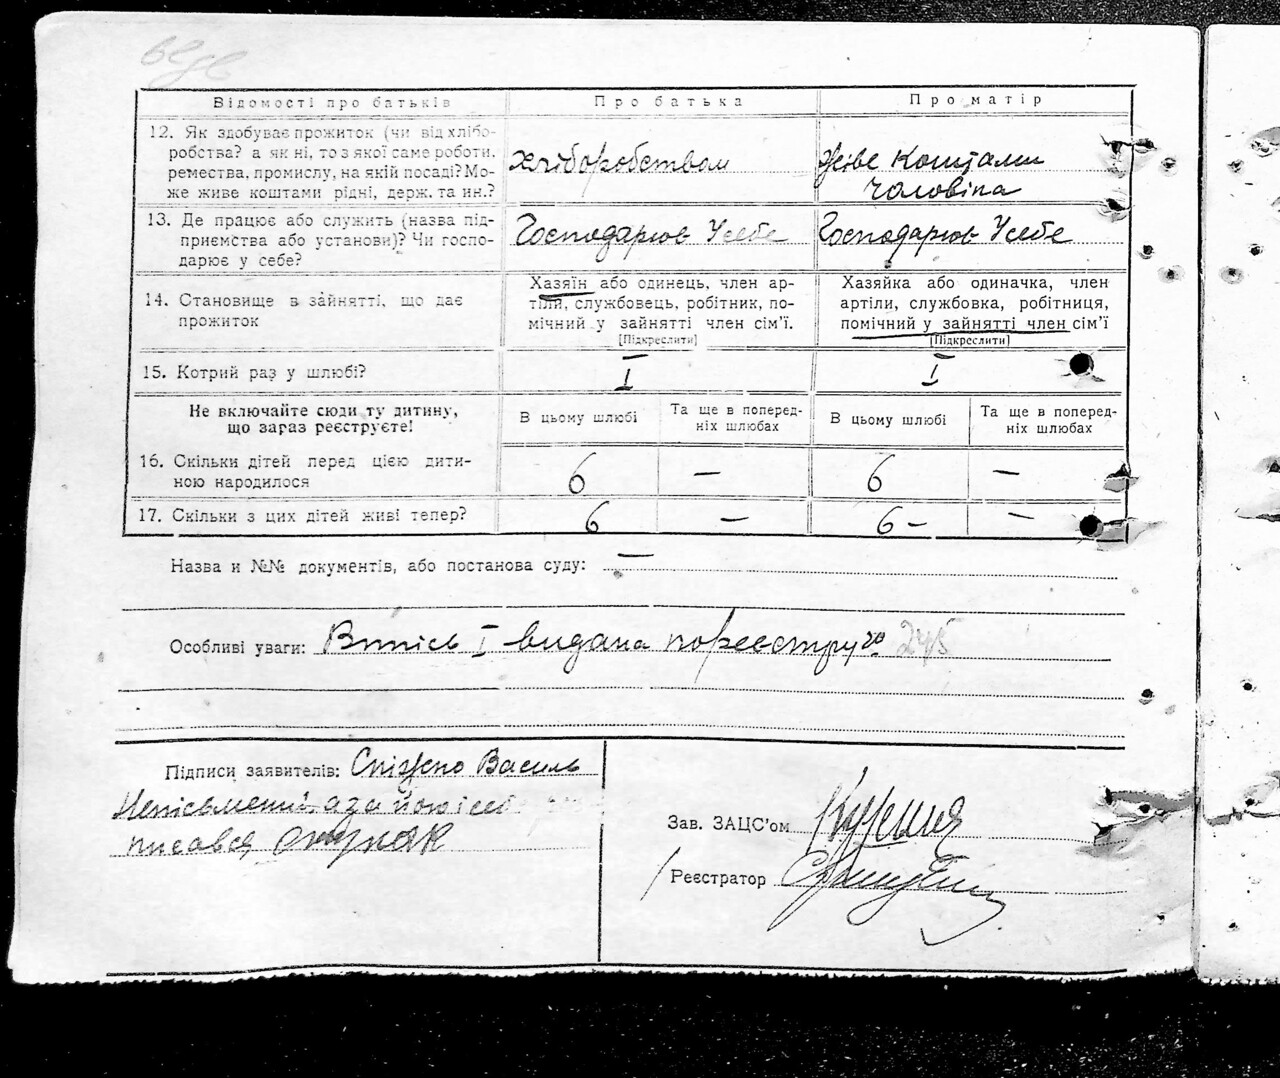 Відомості про батьків Про батька Про матір
12. Як здобуває прожиток (чи від хлібо-
робства? а як ні, то з якої саме роботи,
ремества, промислу, на якій посаді? Мо-
же живе коштами рідні, держ. та ин.?
хліборобством
живе коштами
чоловіка
13. Де працює або служить (назва під-
приємства або установи)? Чи госпо-
дарює у себе?
Господарює У себе
Господарює У себе
14. Становище в зайнятті, що дає
прожиток
Хазяїн або одинець, член ар-
тіли, службовець, робітник, по-
мічний у зайнятті член сім'ї.
[Підкреслити]
Хазяйка або одиначка, член
артіли, службовка, робітниця,
помічний у зайнятті член сім'ї
[Підкреслити]
15. Котрий раз у шлюбі? I I
Не включайте сюди ту дитину,
що зараз реєструєте!
В цьому шлюбі
Та ще в поперед-
ніх шлюбах
В цьому шлюбі
Та ще в поперед-
ніх шлюбах
16. Скільки дітей перед цією дити-
ною народилося
6 — 6 —
17. Скільки з цих дітей живі тепер? 6 — 6 — —
Назва и №№ документів, або постанова суду: —
Особливі уваги: Виписъ I видана по реєстру № 245
Підписи заявителів: Василь
писався
Зав. ЗАЦС'ом
Реєстратор